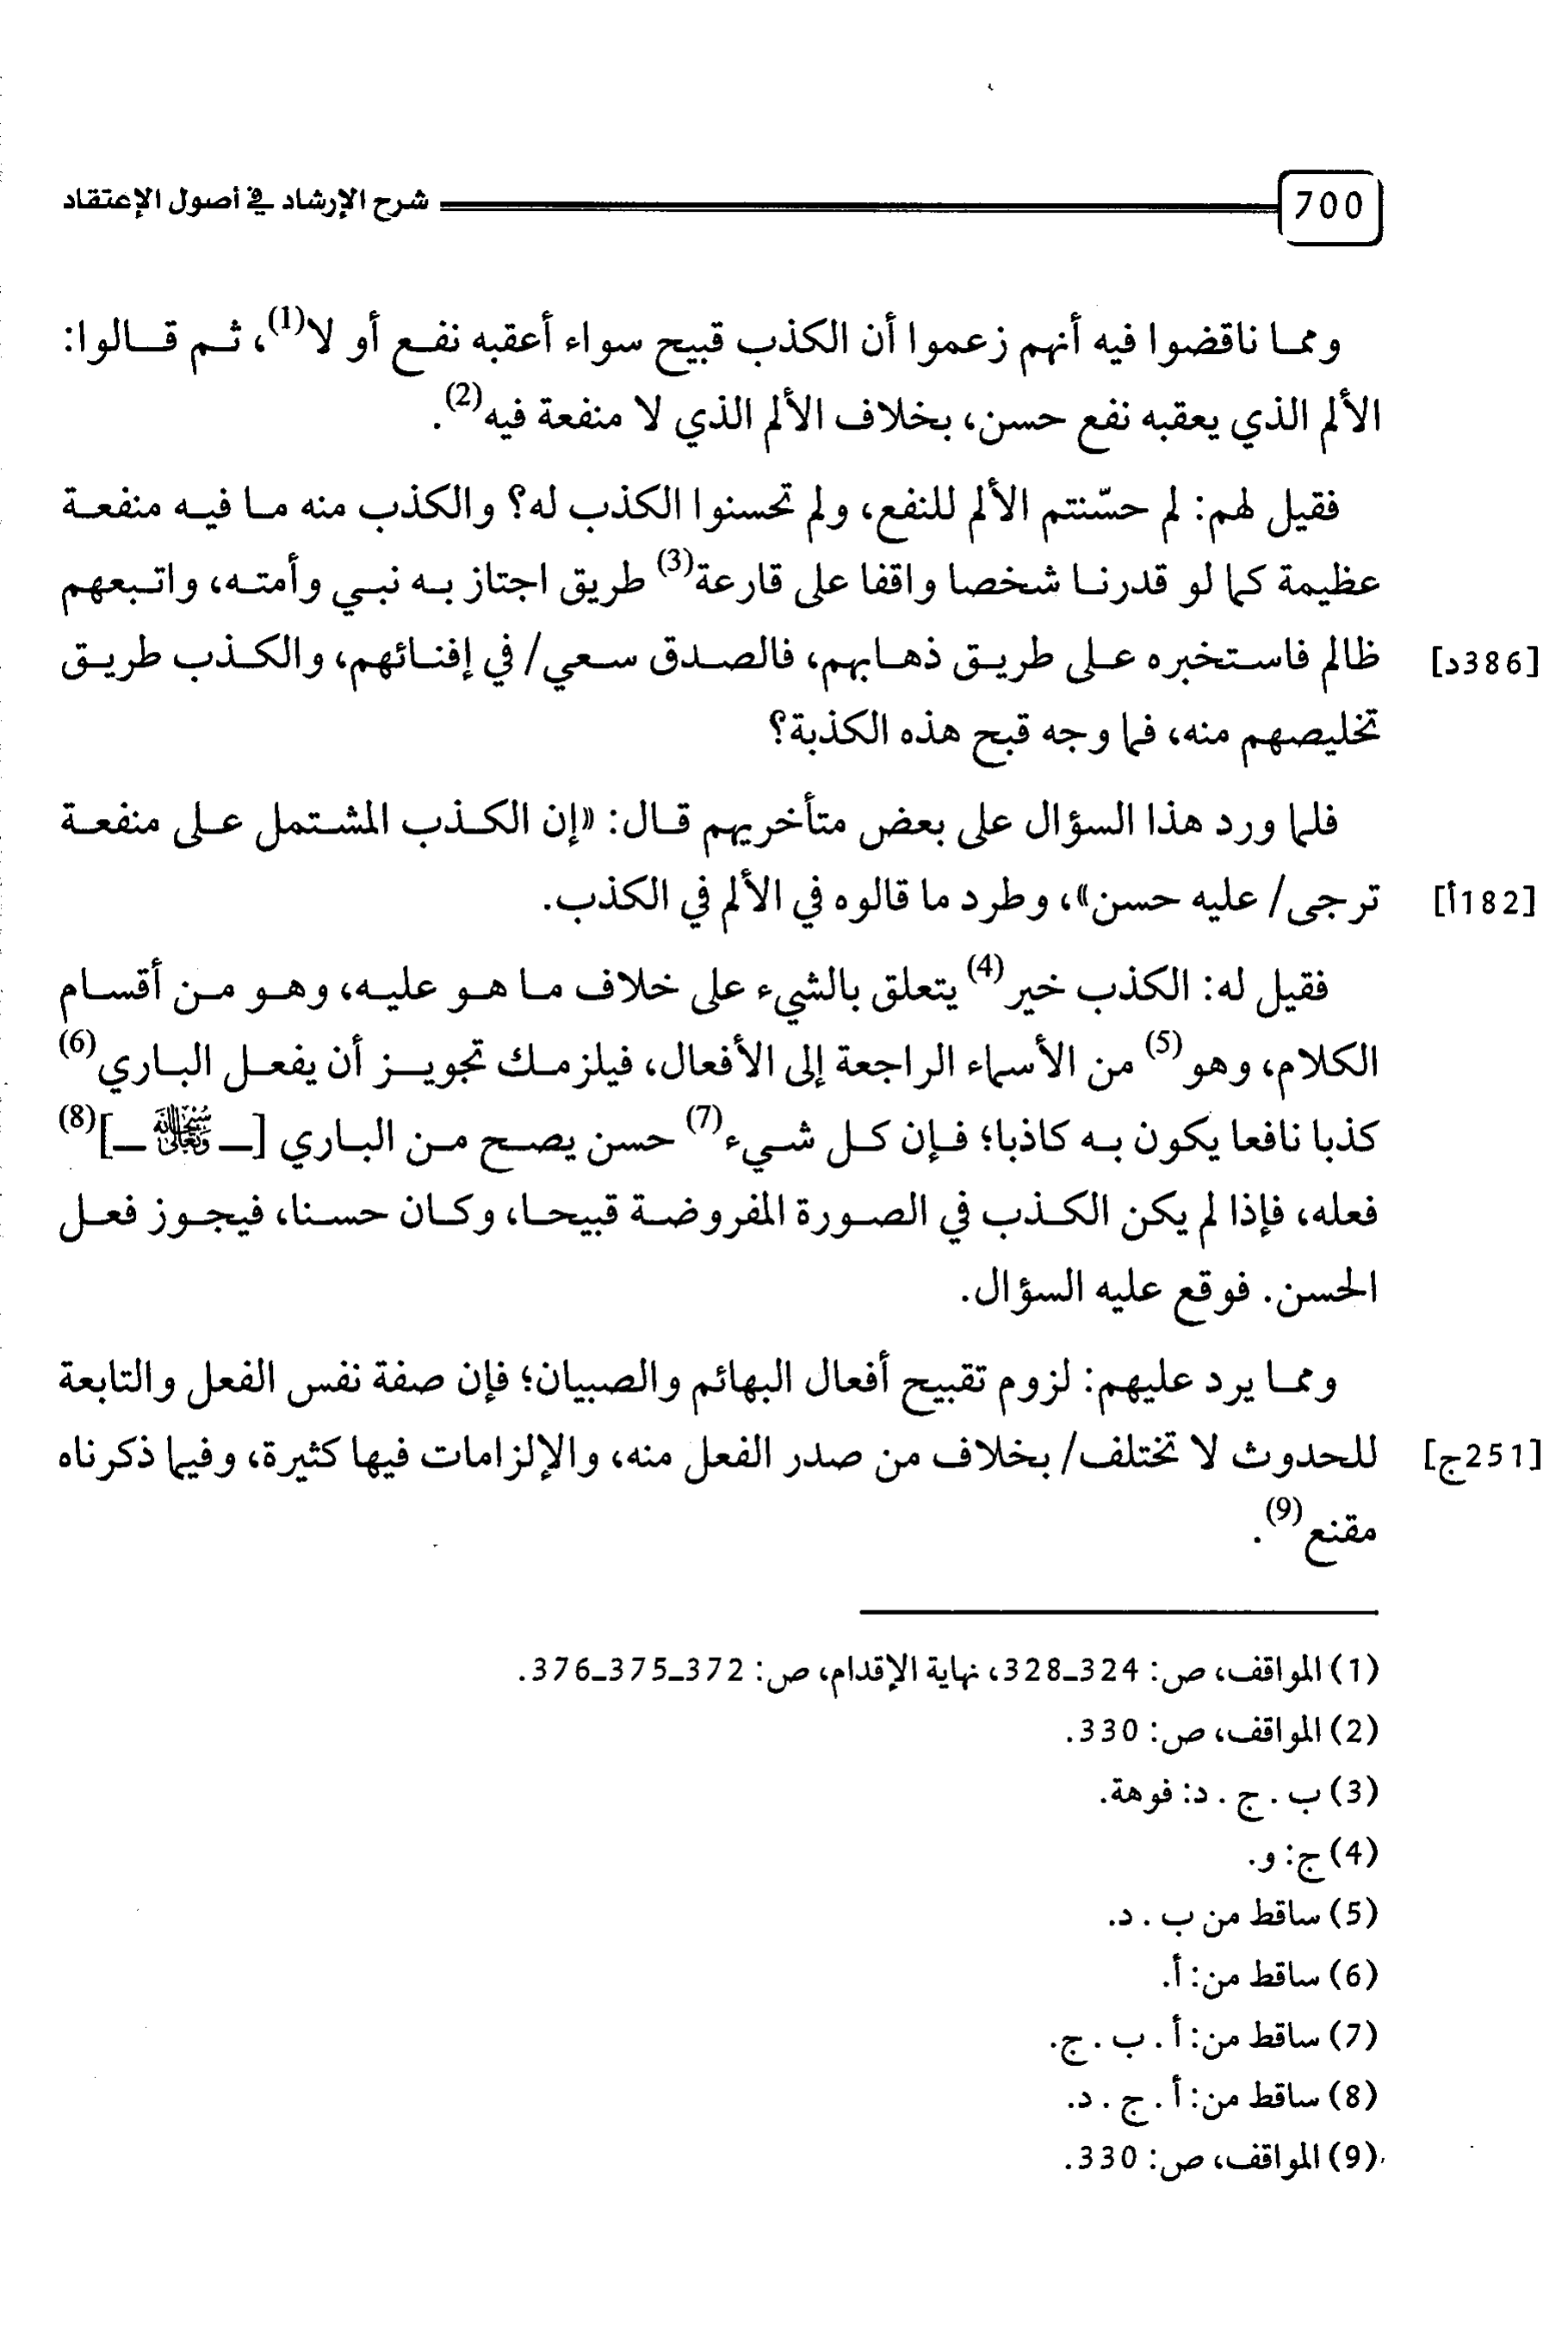 700 شرح الإرشاد في أصول الإعتقاد
ومما ناقضوا فيه أنهم زعموا أن الكذب قبيح سواء أعقبه نفع أو لا(1)، ثم قالوا:
الألم الذي يعقبه نفع حسن، بخلاف الألم الذي لا منفعة فيه(2).
فقيل لهم: لم حسّنتم الألم للنفع، ولم تحسنوا الكذب له؟ والكذب منه ما فيه منفعة
عظيمة كما لو قدرنا شخصا واقفا على قارعة(3) طريق اجتاز به نبي وأمته، واتبعهم
[386د] ظالم فاستخبره على طريق ذهابهم، فالصدق سعي/ في إفنائهم، والكذب طريق
تخليصهم منه، فما وجه قبح هذه الكذبة؟
فلما ورد هذا السؤال على بعض متأخريهم قال: «إن الكذب المشتمل على منفعة
[182أ] ترجى/ عليه حسن»، وطرد ما قالوه في الألم في الكذب.
فقيل له: الكذب خير(4) يتعلق بالشيء على خلاف ما هو عليه، وهو من أقسام
الكلام، وهو(5) من الأسماء الراجعة إلى الأفعال، فيلزمك تجويز أن يفعل الباري(6)
كذبا نافعا يكون به كاذبا؛ فإن كل شيء(7) حسن يصح من الباري [ـ سبحانه وتعالى ـ](8)
فعله، فإذا لم يكن الكذب في الصورة المفروضة قبيحا، وكان حسنا، فيجوز فعل
الحسن. فوقع عليه السؤال.
ومما يرد عليهم: لزوم تقبيح أفعال البهائم والصبيان؛ فإن صفة نفس الفعل والتابعة
[251ج] للحدوث لا تختلف/ بخلاف من صدر الفعل منه، والإلزامات فيها كثيرة، وفيما ذكرناه
مقنع(9).
(1) المواقف، ص: 324ـ328، نهاية الإقدام، ص: 372ـ375ـ376.
(2) المواقف، ص: 330.
(3) ب . ج . د: فوهة.
(4) ج: و.
(5) ساقط من ب . د.
(6) ساقط من: أ.
(7) ساقط من: أ . ب . ج.
(8) ساقط من: أ . ج . د.
(9) المواقف، ص: 330.